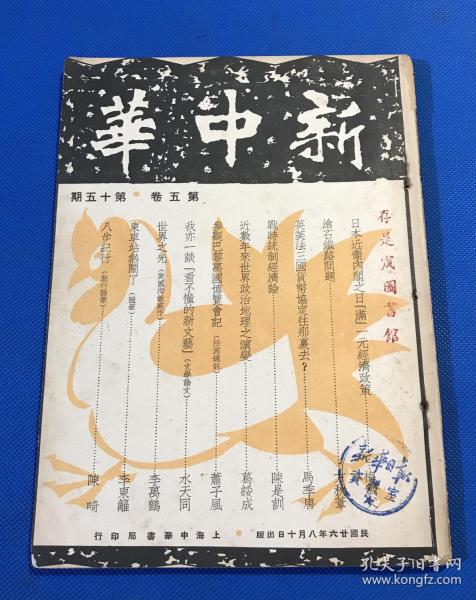 新中華
第五卷 第十五期
日本近衛內閣之日「滿」一元經濟政策
滄石鐵路問題
英美法三國貨幣協定往那裏去？……馬季唐
戰時統制經濟論……陳是訓
近數年來世界政治地理之演變……葛綏成
參觀巴黎萬國博覽會記（法國通訊）……蕭子風
我亦一談「看不懂的新文藝」（文學論文）……水天同
世界之光……李萬鶴
東車站熱鬧了（隨筆）……李東籬
八步紀行（旅行隨筆）……陳畸
民國廿六年八月十日出版
上海中華書局印行
孔夫子旧书网
www.kongfz.com